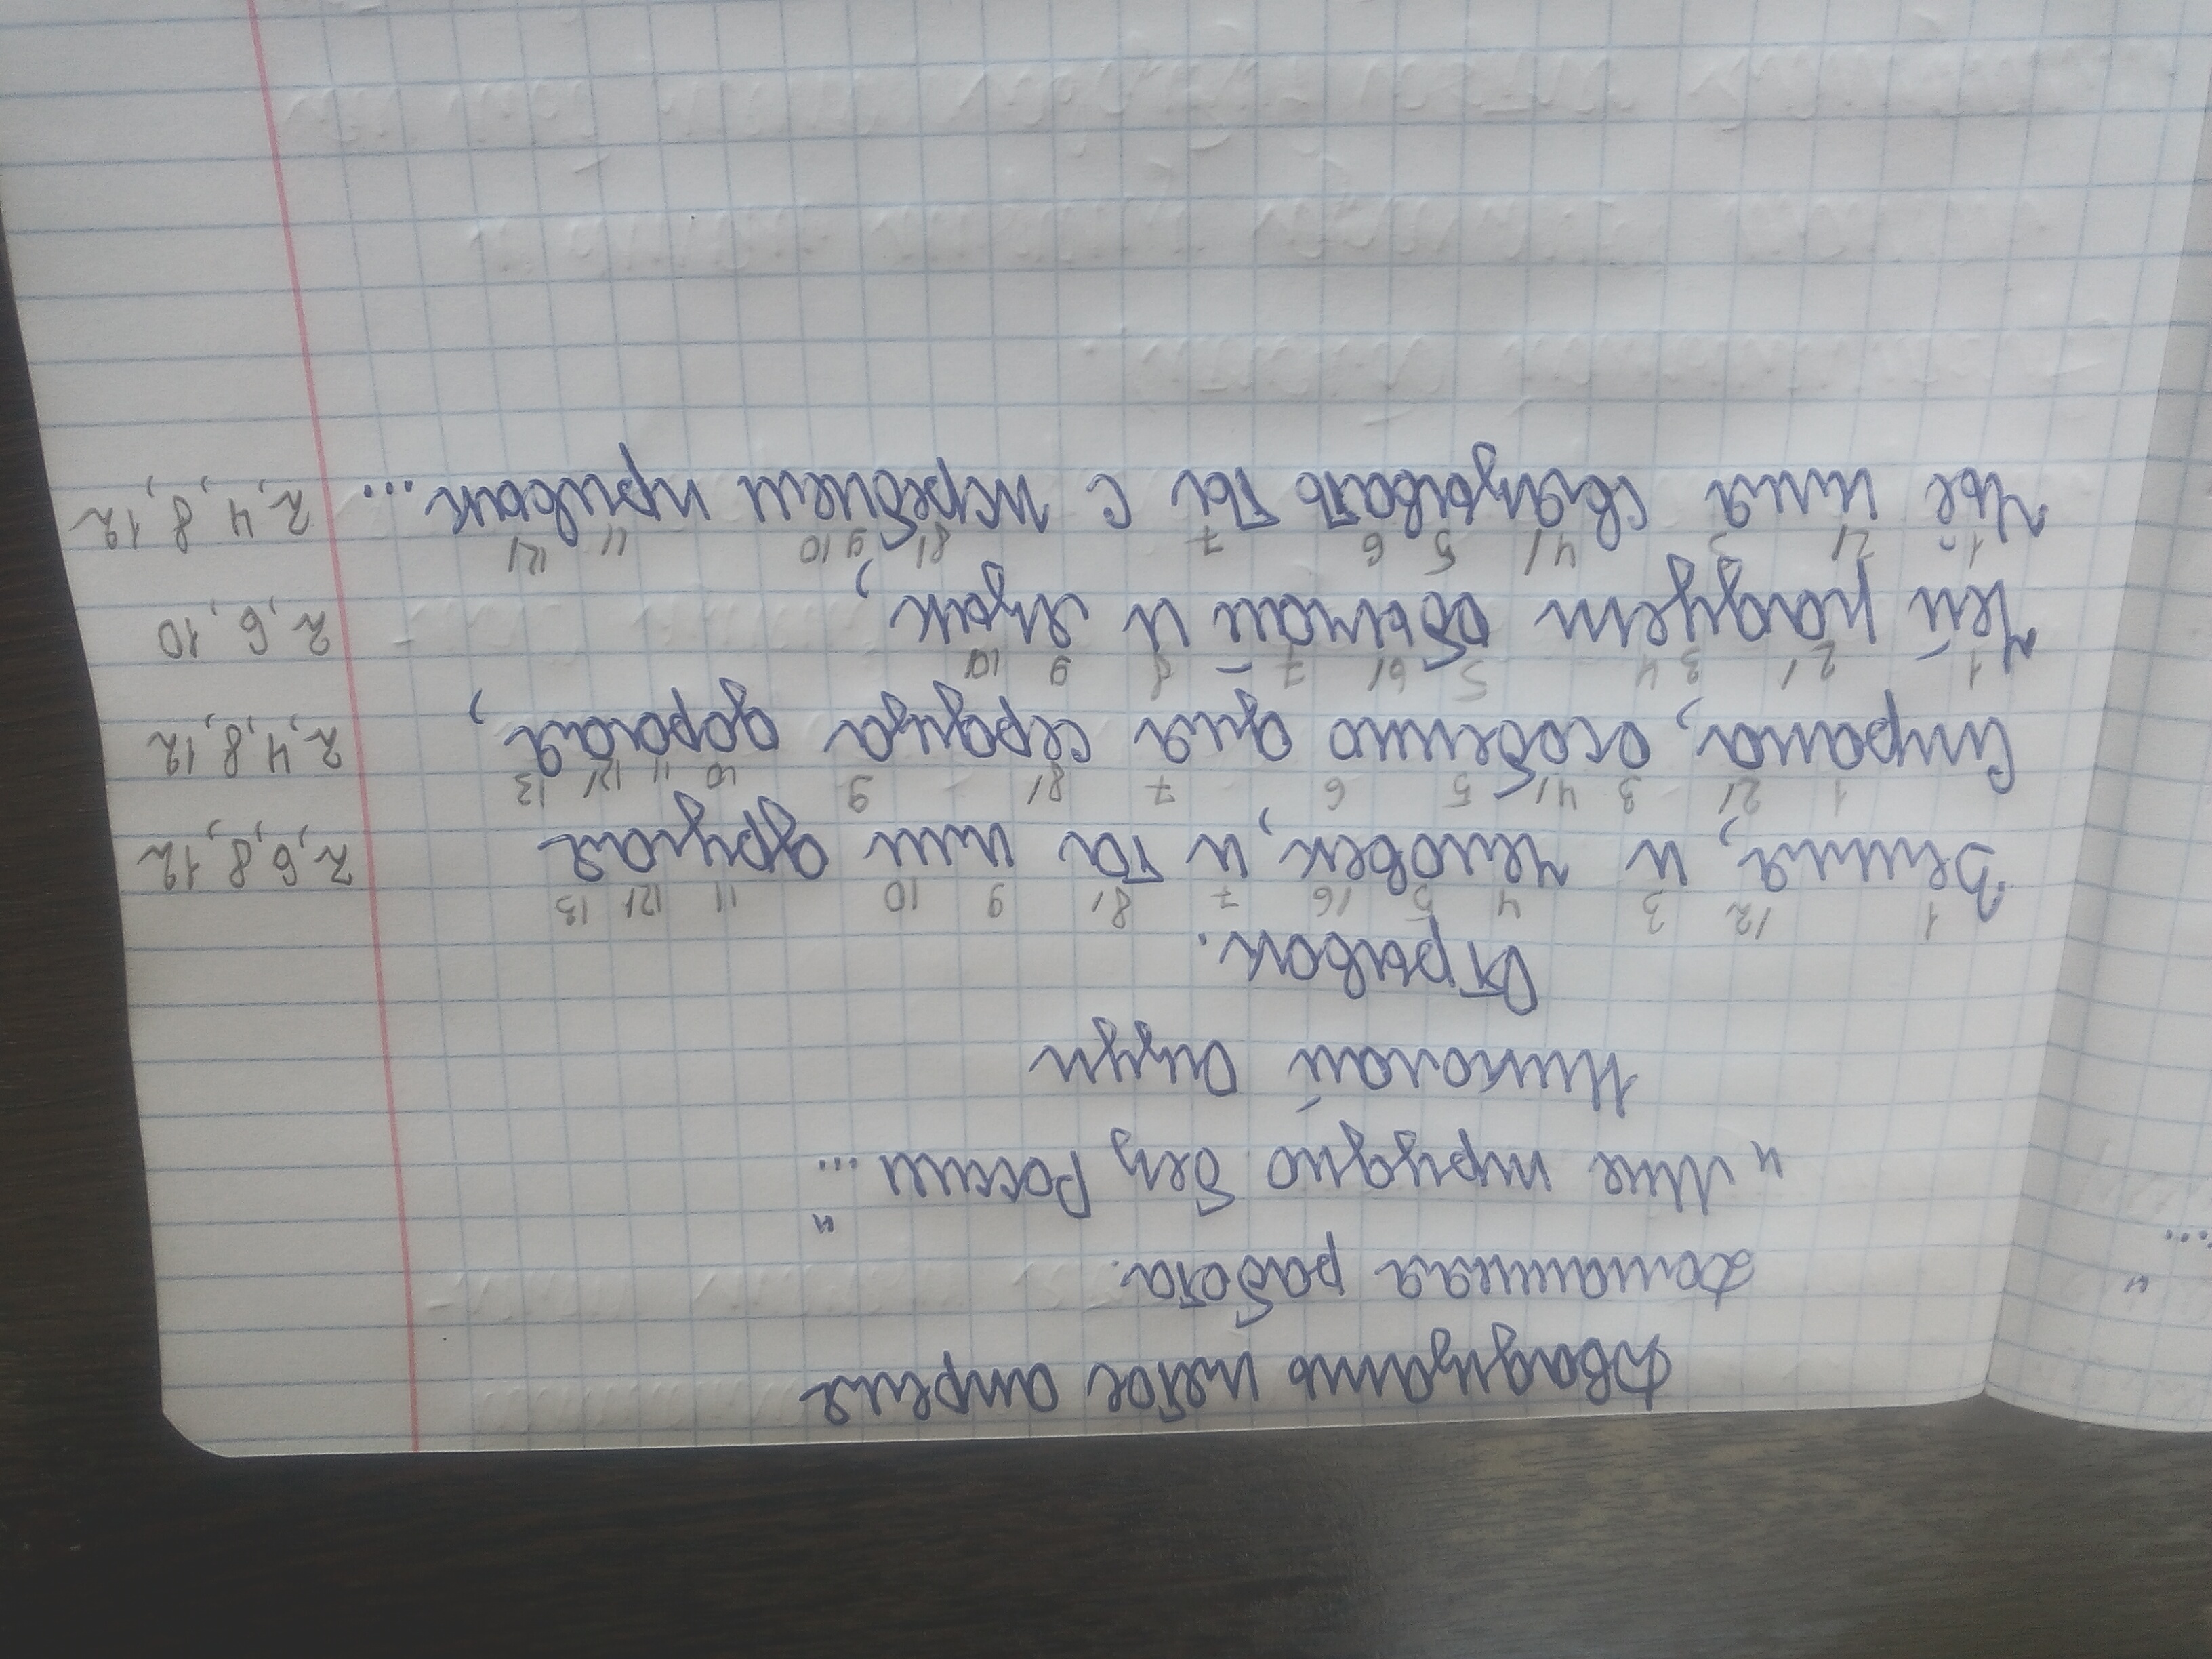 Двадцать пятое апреля
Домашняя работа.
„Мне трудно без России..."
Николай Оцуп
Отрывок.
1 2' 3 4 5 6' 7 8' 9 10 11 12' 13
Земля, и человек, и то или другое 2, 6, 8, 12
1 2' 3 4' 5 6 7 8' 9 10 11 12' 13
Страна, особенно для сердца дорогая, 2, 4, 8, 12
1 2' 3 4 5 6' 7 8 9 10'
Чей каждому обычай и язык, 2, 6, 10
1 2' 3 4' 5 6 7 8' 9 10 11 12'
Чьё имя связывать ты с жребием привык... 2, 4, 8, 12